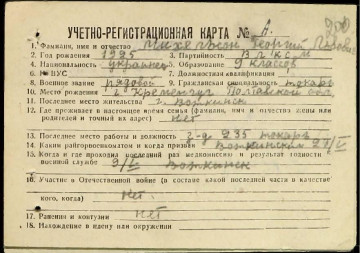 УЧЕТНО-РЕГИСТРАЦИОННАЯ КАРТА № А.
1. Фамилия, имя и отчество Георгий
2. Год рождения 1925 3. Партийность ВЛКСМ
4. Национальность украинец 5. Образование 9 классов
6. № ВУС 7. Должностная квалификация
8. Военное звание рядовой 9. Гражданская специальность токарь
10. Место рождения г. Кременчуг Полтавской обл.
11. Последнее место жительства г. Воткинск
12. Где проживает в настоящее время семья (фамилия, имя и отчество жены или родителей и точный их адрес) нет
13. Последнее место работы и должность з-д 235 токарь
14. Каким райгорвоенкоматом и когда призван Воткинским 27/V
15. Когда и где проходил последний раз медкомиссию и результат годности к военной службе 9/V Воткинск
16. Участие в Отечественной войне (в составе какой последней части в качестве кого, когда) нет
17. Ранения и контузии нет
18. Нахождение в плену или окружении